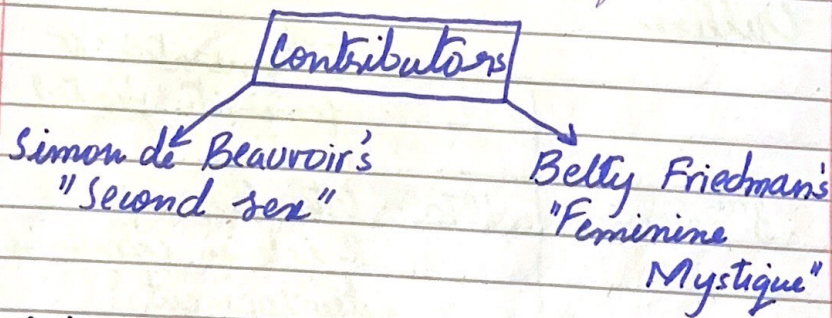 Contributors
Simon de Beauvoir's
"Second sex"
Betty Friedman's
"Feminine
Mystique"